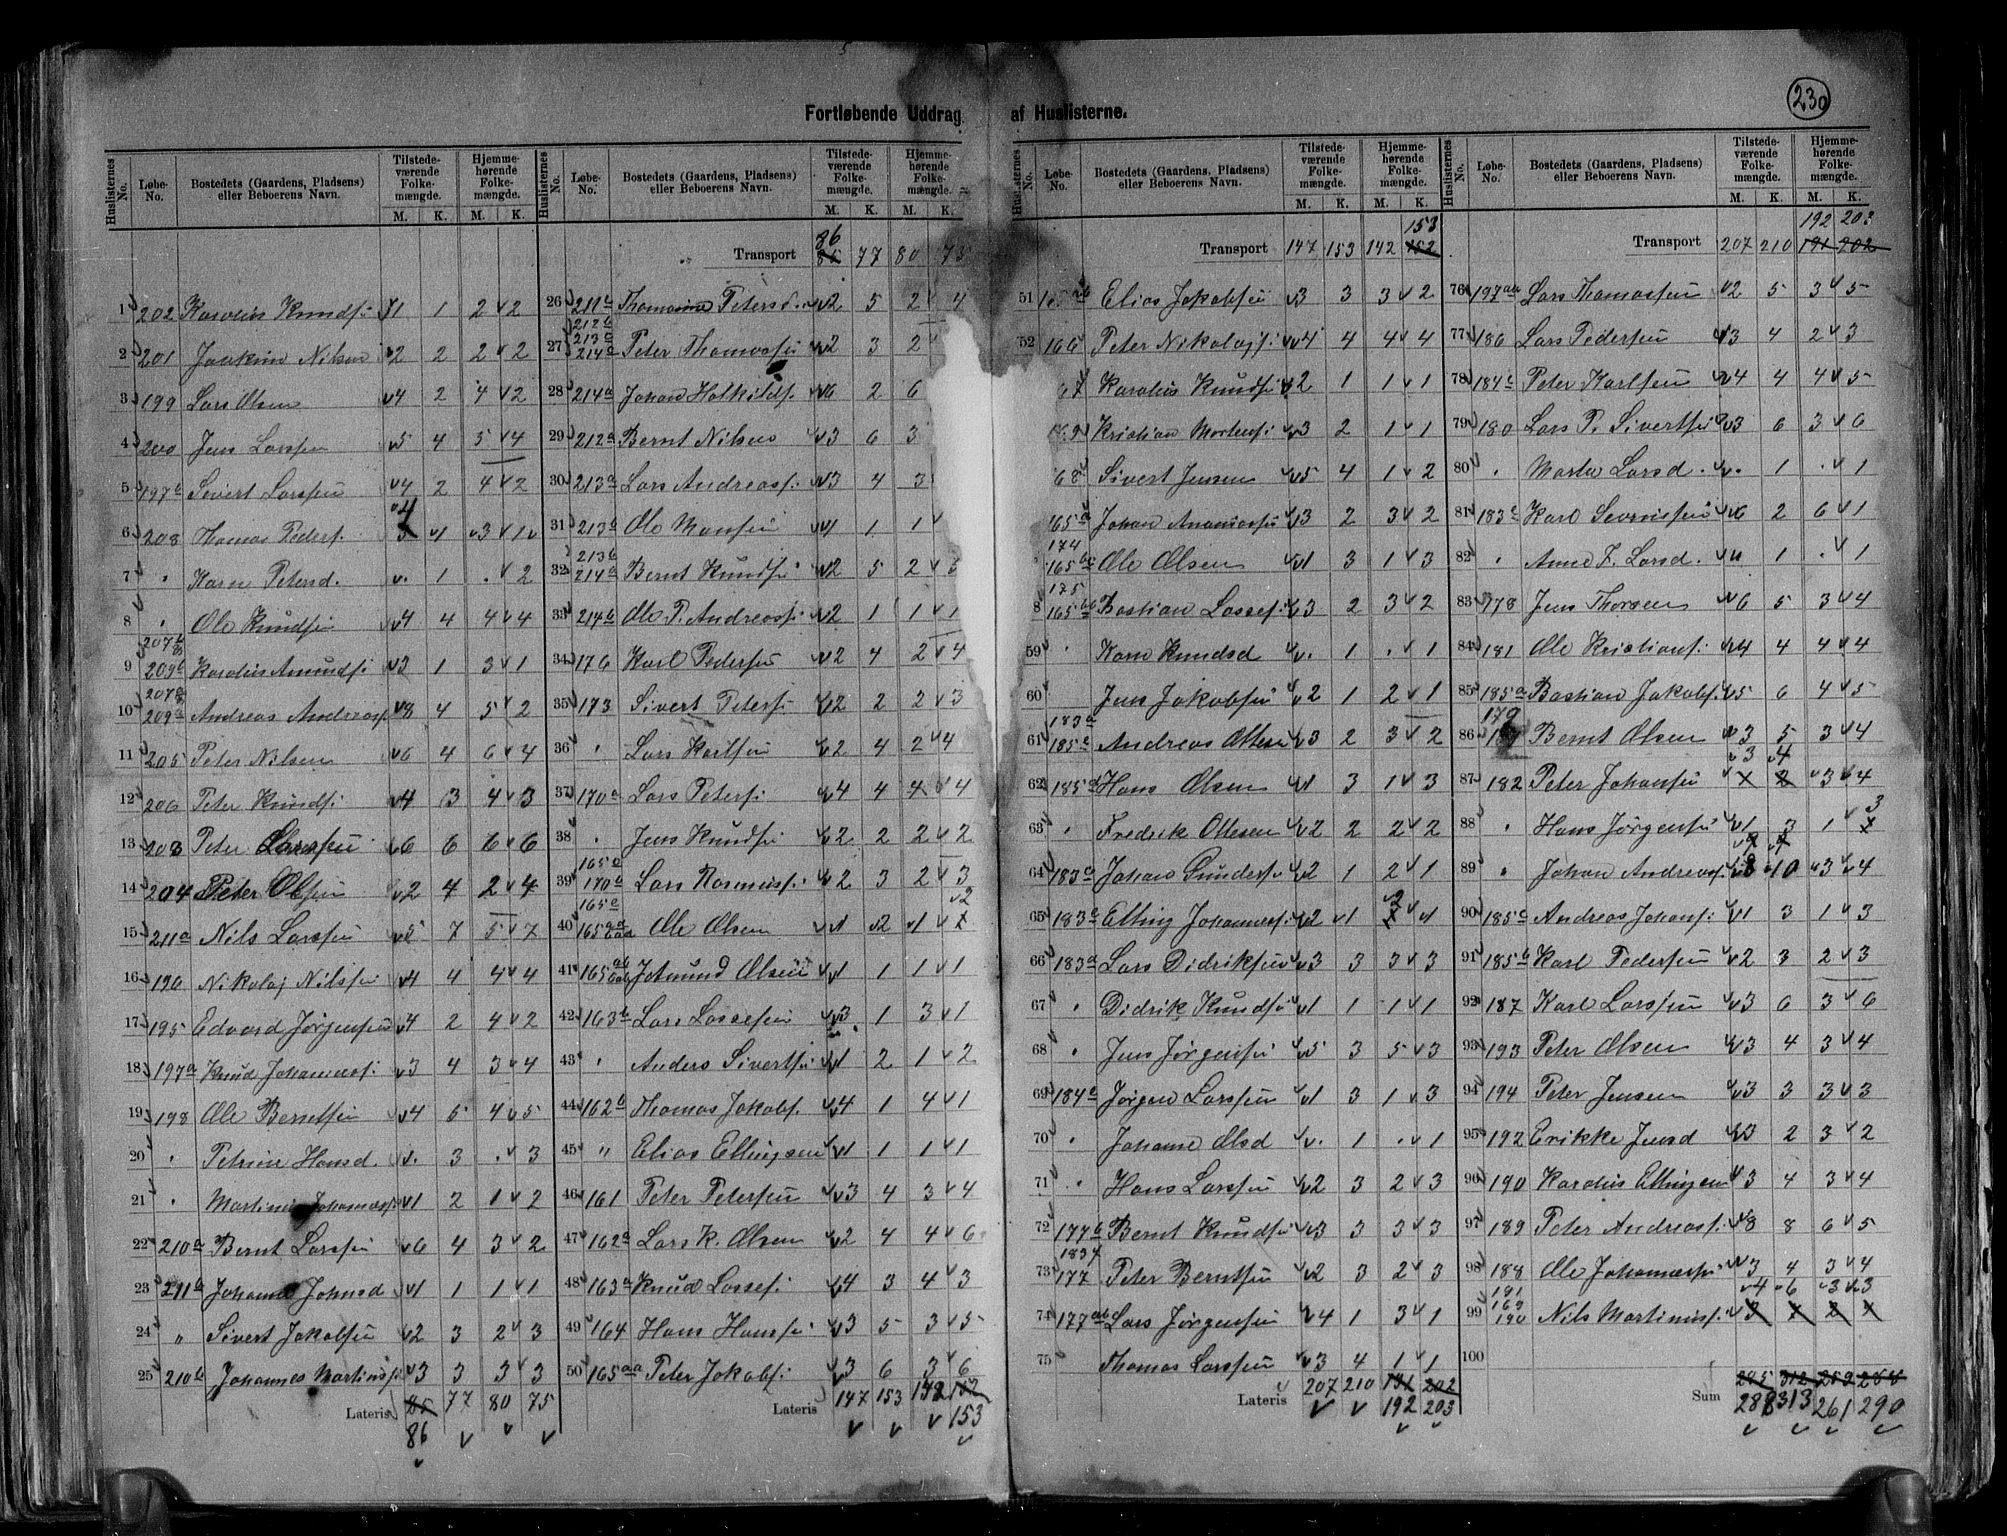 230
Fortløbende Uddrag af Huslisterne.
Huslisternes No. Løbe-No. Bostedets (Gaardens, Pladsens) eller Beboerens Navn. Tilstedeværende Folkemængde. M. K. Hjemmehørende Folkemængde. M. K.
1 202 Karolius Knudsen 1 1 2 2
2 201 Joakim Nilsen 2 2 2 2
3 199 Lars Olsen 4 2 4 2
4 200 Jens Larssen 5 4 5 4
5 197b Sivert Larssen 4 2 4 2
6 208 Thomas Peders. 4 1 3 1
7 " Karn Petersd. . 1 . 2
8 " Ole Knudsen 4 4 4 4
9 209b Karolius Amunds. 3 1 3 1
10 209a Andreas Andreass. 8 4 5 2
11 205 Peter Nilsen 6 4 6 4
12 206 Peter Knuds. 4 3 4 3
13 203 Peter Larssen 6 6 6 6
14 204 Peter Olsen 2 4 2 4
15 211a Nils Larssen 5 7 5 7
16 196 Nikolaj Nilssen 4 4 4 4
17 195 Edvard Jørgensen 4 2 4 2
18 197a Knud Johanness. 3 4 3 4
19 198 Ole Berntsen 4 5 4 5
20 " Petrine Hansd. . 3 . 3
21 " Martinus Johanness. 1 2 1 2
22 210a Bernt Larssen 6 4 3 2
23 211b Johanna Johnsd 1 1 1 1
24 " Sivert Jakobsen 2 3 2 3
25 210b Johannes Martinuss. 3 3 3 3
Lateris 85 77 80 75
86
Huslisternes No. Løbe-No. Bostedets (Gaardens, Pladsens) eller Beboerens Navn. Tilstedeværende Folkemængde. M. K. Hjemmehørende Folkemængde. M. K.
86
Transport 85 77 80 75
26 211c Petersd. 2 5 2 4
27 212b 213a 214c Peter Thomassen 2 3 2
28 214a Johan 6 2 6
29 212a Bernt Nilsen 3 6 3
30 213a Lars Andreass. 3 4 3
31 213a Ole Monsen 1 1 1
32 213b 214a Bernt Knuds. 2 5 2 5
33 214b Ole P. Andreass. 2 1 1 1
34 176 Karl Pedersen 2 4 2 4
35 173 Sivert Peters. 2 2 2 3
36 " Lars Karlsen 2 4 2 4
37 170a Lars Peters. 4 4 4 4
38 " Jens Knuds. 2 2 2 2
39 165e 170b Lars Rasmuss. 2 3 2 3
40 165e Ole Olsen 1 2 1 2
41 165 Olsen 1 1 1 1
42 163b Lars Lassesen 3 1 3 1
43 " Anders Sivertsen 1 2 1 2
44 162b Thomas Jakobs. 4 1 4 1
45 " Elias Ellingsen 1 1 1 1
46 161 Peter Petersen 3 4 3 4
47 162a Lars K. Olsen 2 4 4 6
48 163a Knud Lasses. 4 3 4 3
49 164 Hans Hanssen 3 5 3 5
50 165aa Peter Jakobs. 3 6 3 6
Lateris 147 153 142 152
153
Huslisternes No. Løbe-No. Bostedets (Gaardens, Pladsens) eller Beboerens Navn. Tilstedeværende Folkemængde. M. K. Hjemmehørende Folkemængde. M. K.
153
Transport 147 153 142 152
51 Elias Jakobsen 3 3 3 2
52 166 Peter Nikolajs. 4 4 4 4
Karolius Knuds. 2 1 1 1
Kristian Mortens. 3 2 1 1
68 Sivert Jensen 5 4 1 2
165a Johan Ananiassen 3 2 3 2
174 165b Ole Olsen 1 3 1 3
8 175 165b Bastian Lasses. 3 2 3 2
59 " Karn Knudsd . 1 . 1
60 Jens Jakobsen 2 1 2 1
61 183a 185c Andreas Ottesen 3 2 3 2
62 185d Hans Olsen 1 3 1 3
63 " Fredrik Ottesen 2 2 2 2
64 183a Johan Gunders. 2 1 2 1
65 183a Elling Johanness. 2 1 2 1
66 183a Lars Didriksen 3 3 3 3
67 " Didrik Knuds. 1 1 1 1
68 " Jens Jørgensen 5 3 5 3
69 184a Jørgen Larssen 1 3 1 3
70 " Johanne Olsd . 1 . 1
71 " Hans Larssen 2 3 2 3
72 177b Bernt Knuds. 3 3 3 3
73 177 Peter Berntsen 2 3 2 3
74 177ab Lars Jørgensen 4 1 3 1
75 Thomas Larssen 3 4 1 1
Lateris 207 210 191 202
192 203
Huslisternes No. Løbe-No. Bostedets (Gaardens, Pladsens) eller Beboerens Navn. Tilstedeværende Folkemængde. M. K. Hjemmehørende Folkemængde. M. K.
192 203
Transport 207 210 191 202
76 197aa Lars Thomassen 2 5 3 5
77 186 Lars Pedersen 3 4 2 3
78 184c Peter Karlsen 4 4 4 5
79 180 Lars P. Sivertsen 3 6 3 6
80 " Marta Larsd. . 1 . 1
81 183c Karl Severinsen 6 2 6 1
82 " Anne F. Larsd. " 1 . 1
83 178 Jens Thorsen 6 5 3 4
84 181 Ole Kristians. 4 4 4 4
85 185a Bastian Jakobs. 5 6 4 5
86 179 Bernt Olsen 3 5 3 4
3 4
87 182 Peter Johansen 2 3 4
88 " Hans Jørgensen 1 3 1 3
89 " Johan Andreass. 8 10 3 4
90 185c Andreas Johans. 1 3 1 3
91 185b Karl Pedersen 2 3 2 3
92 187 Karl Larssen 3 6 3 6
93 193 Peter Olsen 3 4 3 4
94 194 Peter Jensen 3 3 3 3
95 192 Erikke Jensd 3 2 3 2
96 190 Karolius Ellingsen 3 4 3 4
97 189 Peter Andreass. 8 8 6 5
98 188 Ole Johannessen 3 4 3 4
191 169 4 6 3 3
99 190 Nils Martinuss. 3 2
100
Sum 285 312 259 288
288 313 261 290